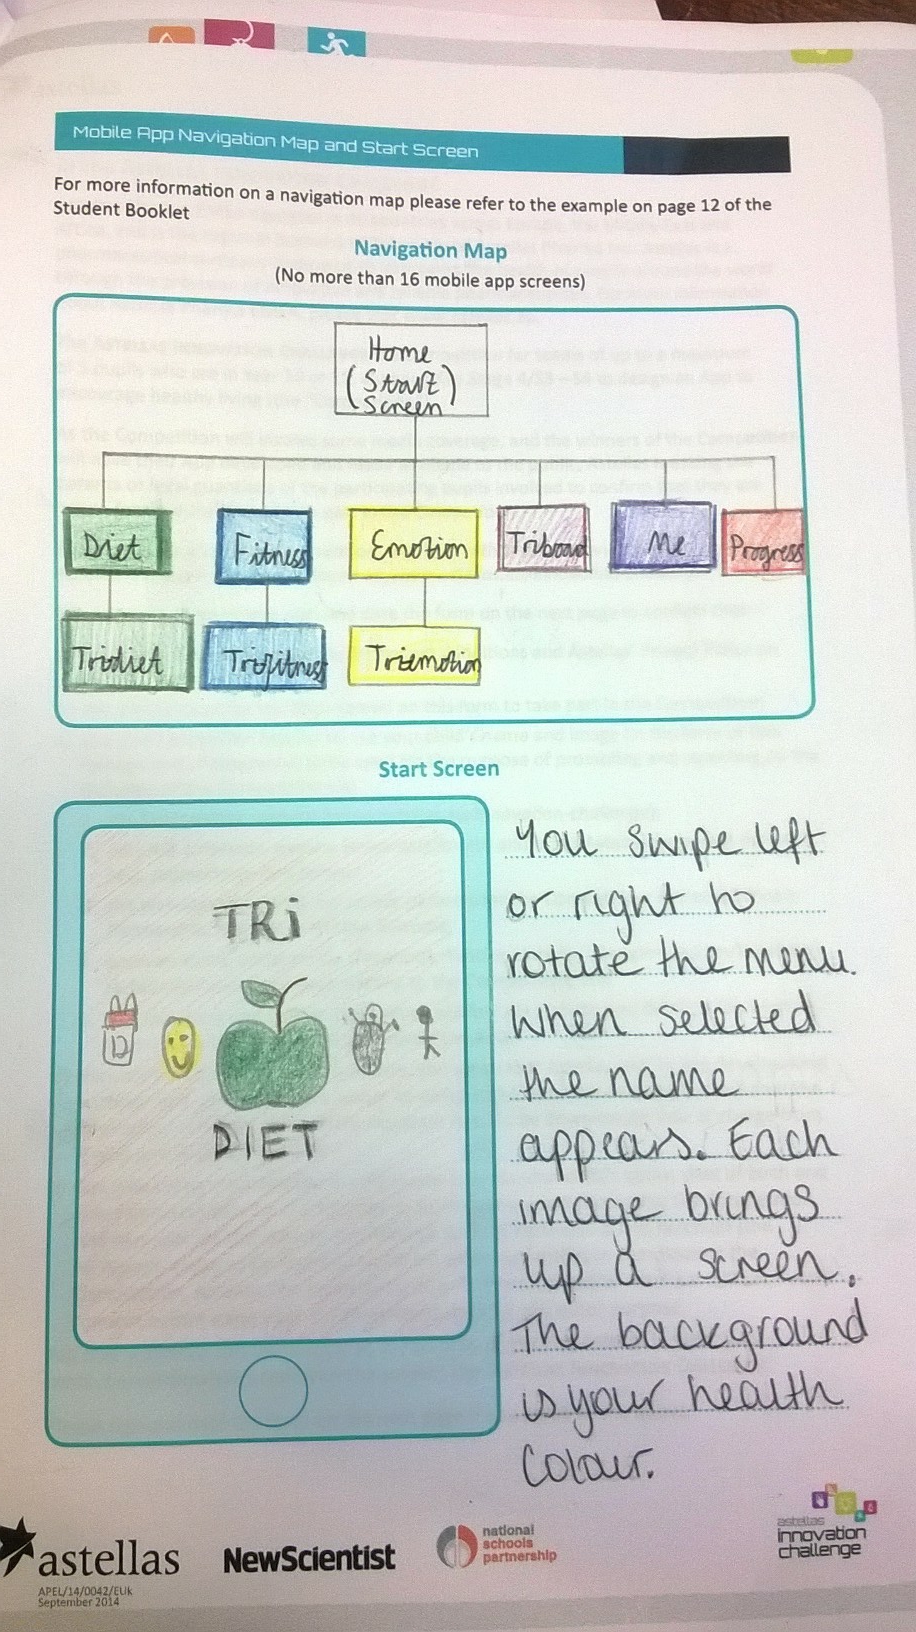 Mobile App Navigation Map and Start Screen
For more information on a navigation map please refer to the example on page 12 of the
Student Booklet
Navigation Map
(No more than 16 mobile app screens)
Home
(Start
Screen)
Diet
Fitness
Emotion
Triboard
Me
Progress
Tridiet
Trifitness
Triemotion
Start Screen
TRi
DIET
You swipe left
or right to
rotate the menu.
When selected
the name
appears. Each
image brings
up a screen.
The background
is your health
colour.
astellas
APEL/14/0042/EUk
September 2014
NewScientist
national
schools
partnership
astellas
innovation
challenge